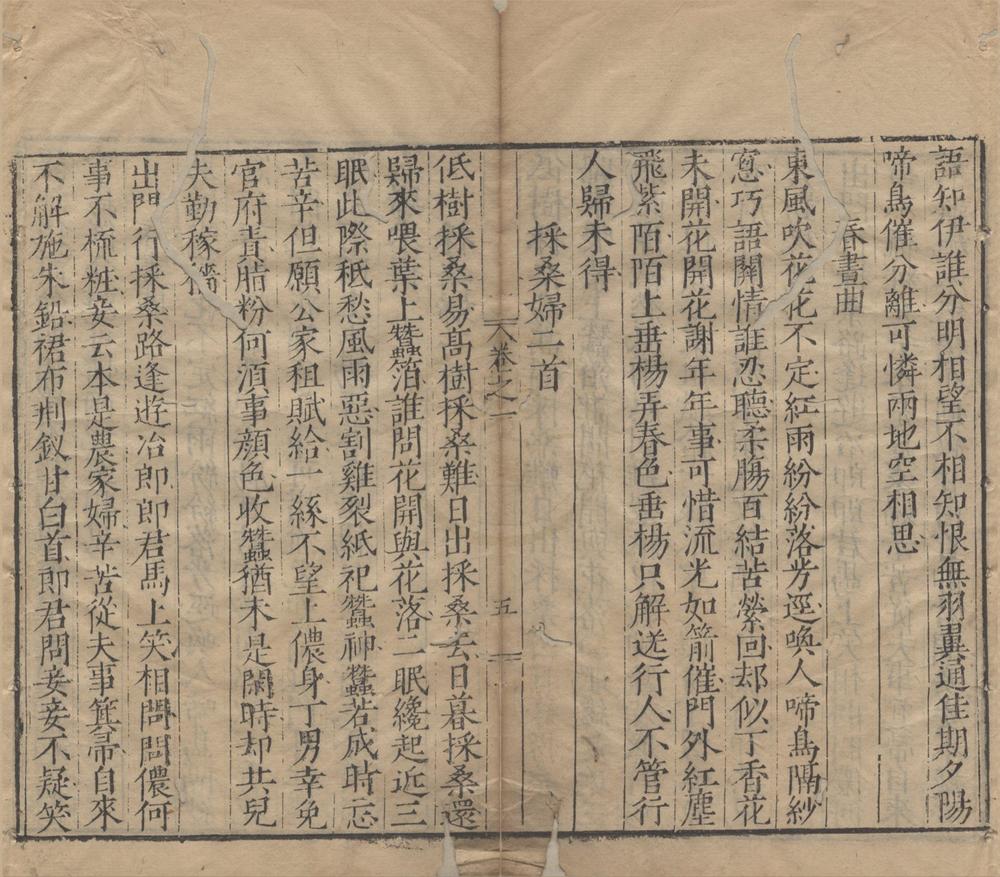 語知伊誰分明相望不相知恨無羽翼通佳期夕陽
啼鳥催分離可憐兩地空相思
春晝曲
東風吹花花不定紅雨紛紛落芳逕喚人啼鳥隔紗
窻巧語關情誰忍聽柔腸百結苦縈回却似丁香花
未開花開花謝年年事可惜流光如箭催門外紅塵
飛紫陌陌上垂楊弄春色垂楊只解送行人不管行
人歸未得
採桑婦二首
卷之一
五
低樹採桑易高樹採桑難日出採桑去日暮採桑還
歸來喂葉上蠶箔誰問花開與花落二眠纔起近三
眠此際秪愁風雨惡割雞裂紙祀蠶神蠶若成時忘
苦辛但願公家租賦給一絲不望上儂身丁男幸免
官府責脂粉何須事顔色收蠶猶未是閑時却共兒
夫勤稼穡
出門行採桑路逢遊冶郎郎君馬上笑相問問儂何
事不梳粧妾云本是農家婦辛苦從夫事箕帚自來
不解施朱鉛裙布荆釵甘白首郎君問妾妾不疑笑